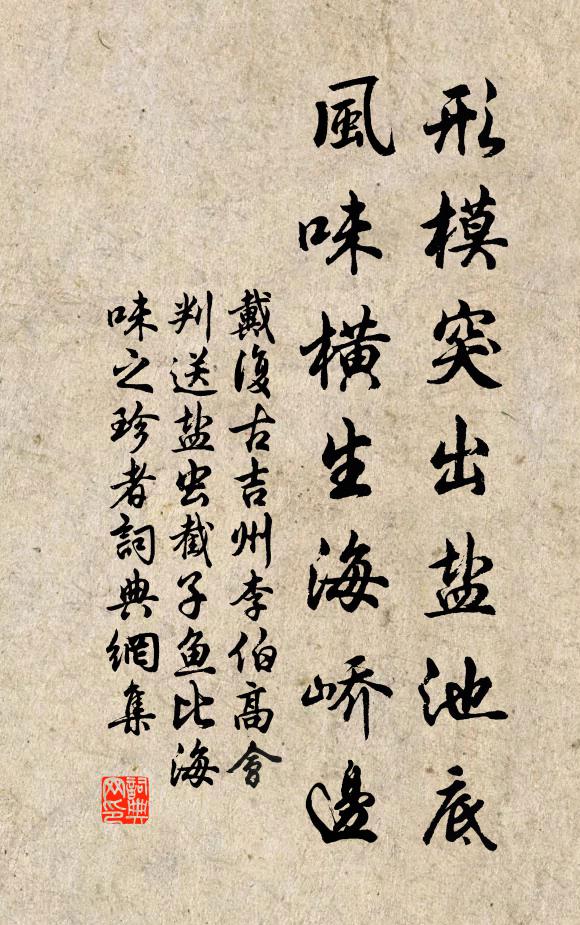 形模突出盐池底
風味橫生海嶠邊
戴復古吉州李伯高會
判送盐虫截子鱼比海
味之珍者詞典網集
詞典
网印